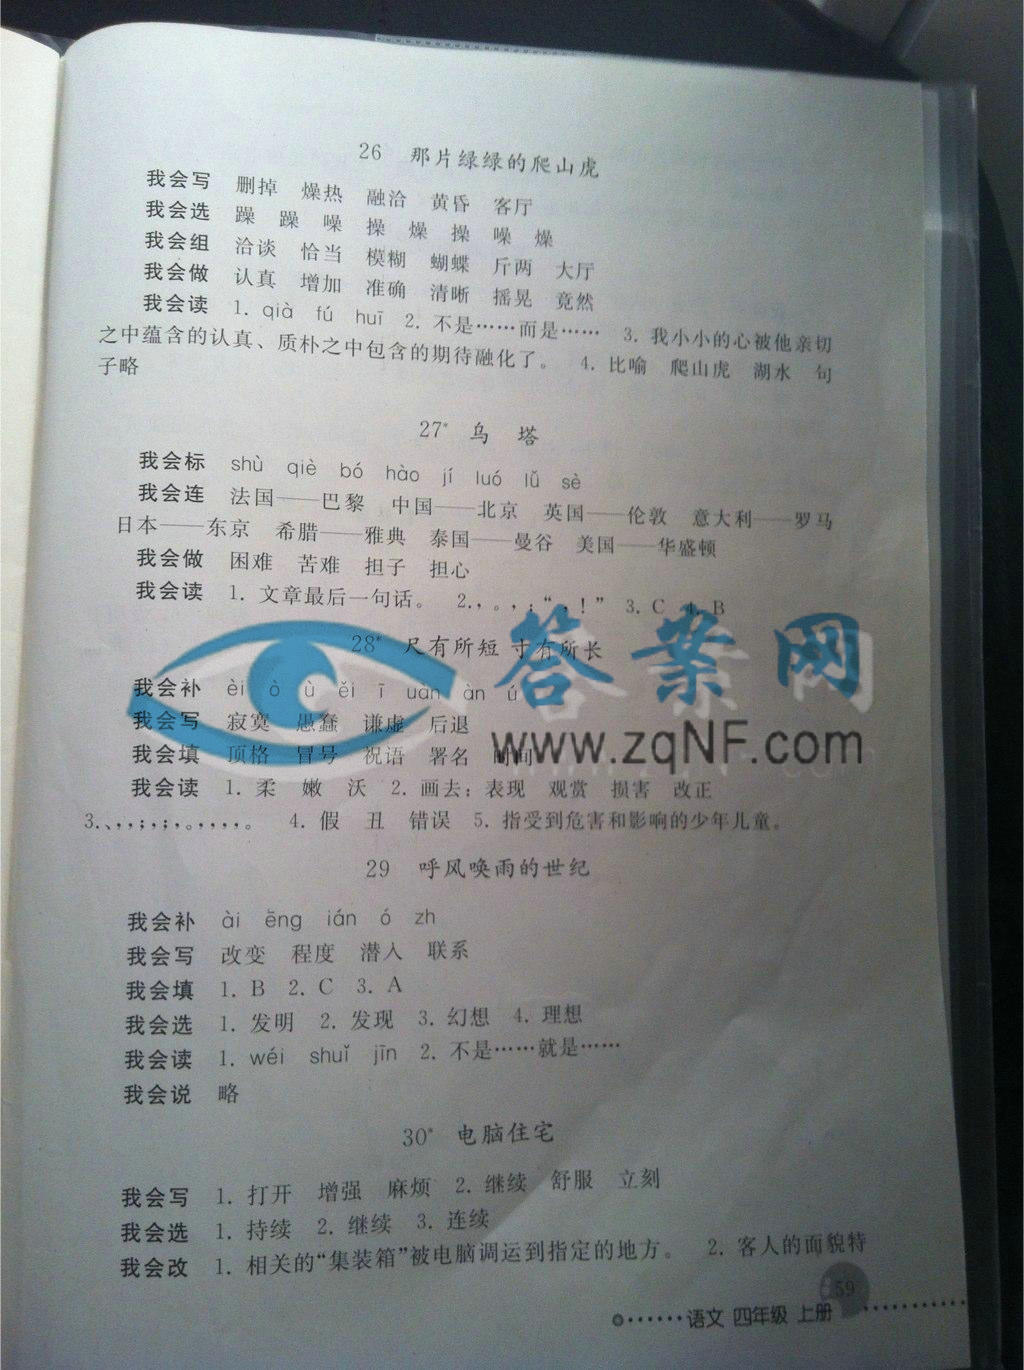 26 那片绿绿的爬山虎
我会写 删掉 燥热 融洽 黄昏 客厅
我会选 躁 躁 噪 操 燥 操 噪 燥
我会组 洽谈 恰当 模糊 蝴蝶 斤两 大厅
我会做 认真 增加 准确 清晰 摇晃 竟然
我会读 1. qià fú huī 2. 不是……而是…… 3. 我小小的心被他亲切
之中蕴含的认真、质朴之中包含的期待融化了。 4. 比喻 爬山虎 湖水 句
子略
27* 乌 塔
我会标 shù qiè bó hào jí luó lǚ sè
我会连 法国——巴黎 中国——北京 英国——伦敦 意大利——罗马
日本——东京 希腊——雅典 泰国——曼谷 美国——华盛顿
我会做 困难 苦难 担子 担心
我会读 1. 文章最后一句话。 2. , 。 , : “ , ! ” 3. C 4. B
28* 尺有所短 寸有所长
我会补 èi ò ù ěi ī uan àn ú
我会写 寂寞 愚蠢 谦虚 后退
我会填 顶格 冒号 祝语 署名 时间
我会读 1. 柔 嫩 沃 2. 画去：表现 观赏 损害 改正
3. 、,,;;;,。,,,,。 4. 假 丑 错误 5. 指受到危害和影响的少年儿童。
29 呼风唤雨的世纪
我会补 ài ēng ián ó zh
我会写 改变 程度 潜入 联系
我会填 1. B 2. C 3. A
我会选 1. 发明 2. 发现 3. 幻想 4. 理想
我会读 1. wéi shuǐ jīn 2. 不是……就是……
我会说 略
30* 电脑住宅
我会写 1. 打开 增强 麻烦 2. 继续 舒服 立刻
我会选 1. 持续 2. 继续 3. 连续
我会改 1. 相关的“集装箱”被电脑调运到指定的地方。 2. 客人的面貌特
59
语文 四年级 上册
答案网
www.zqNF.com